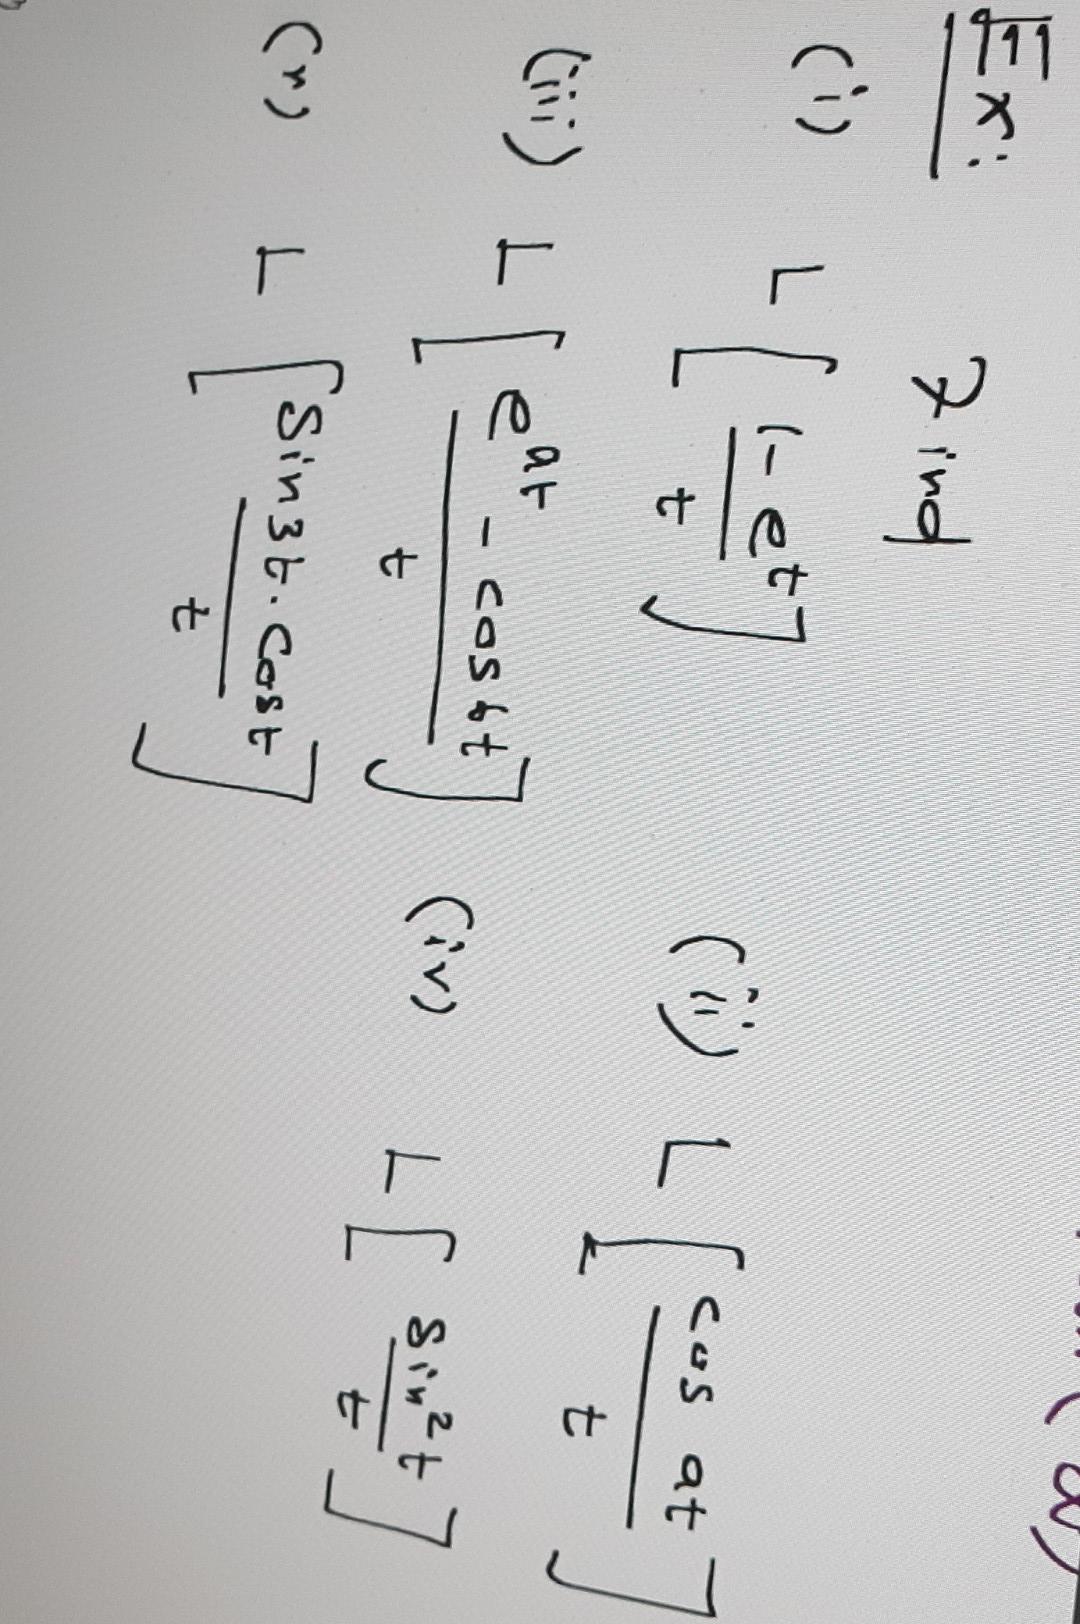 Ex: Find
(i) L[(1-e^t)/t] (ii) L[(cos at)/t]
(iii) L[(e^at - cos bt)/t] (iv) L[(sin²t)/t]
(v) L[(sin3t.cost)/t]